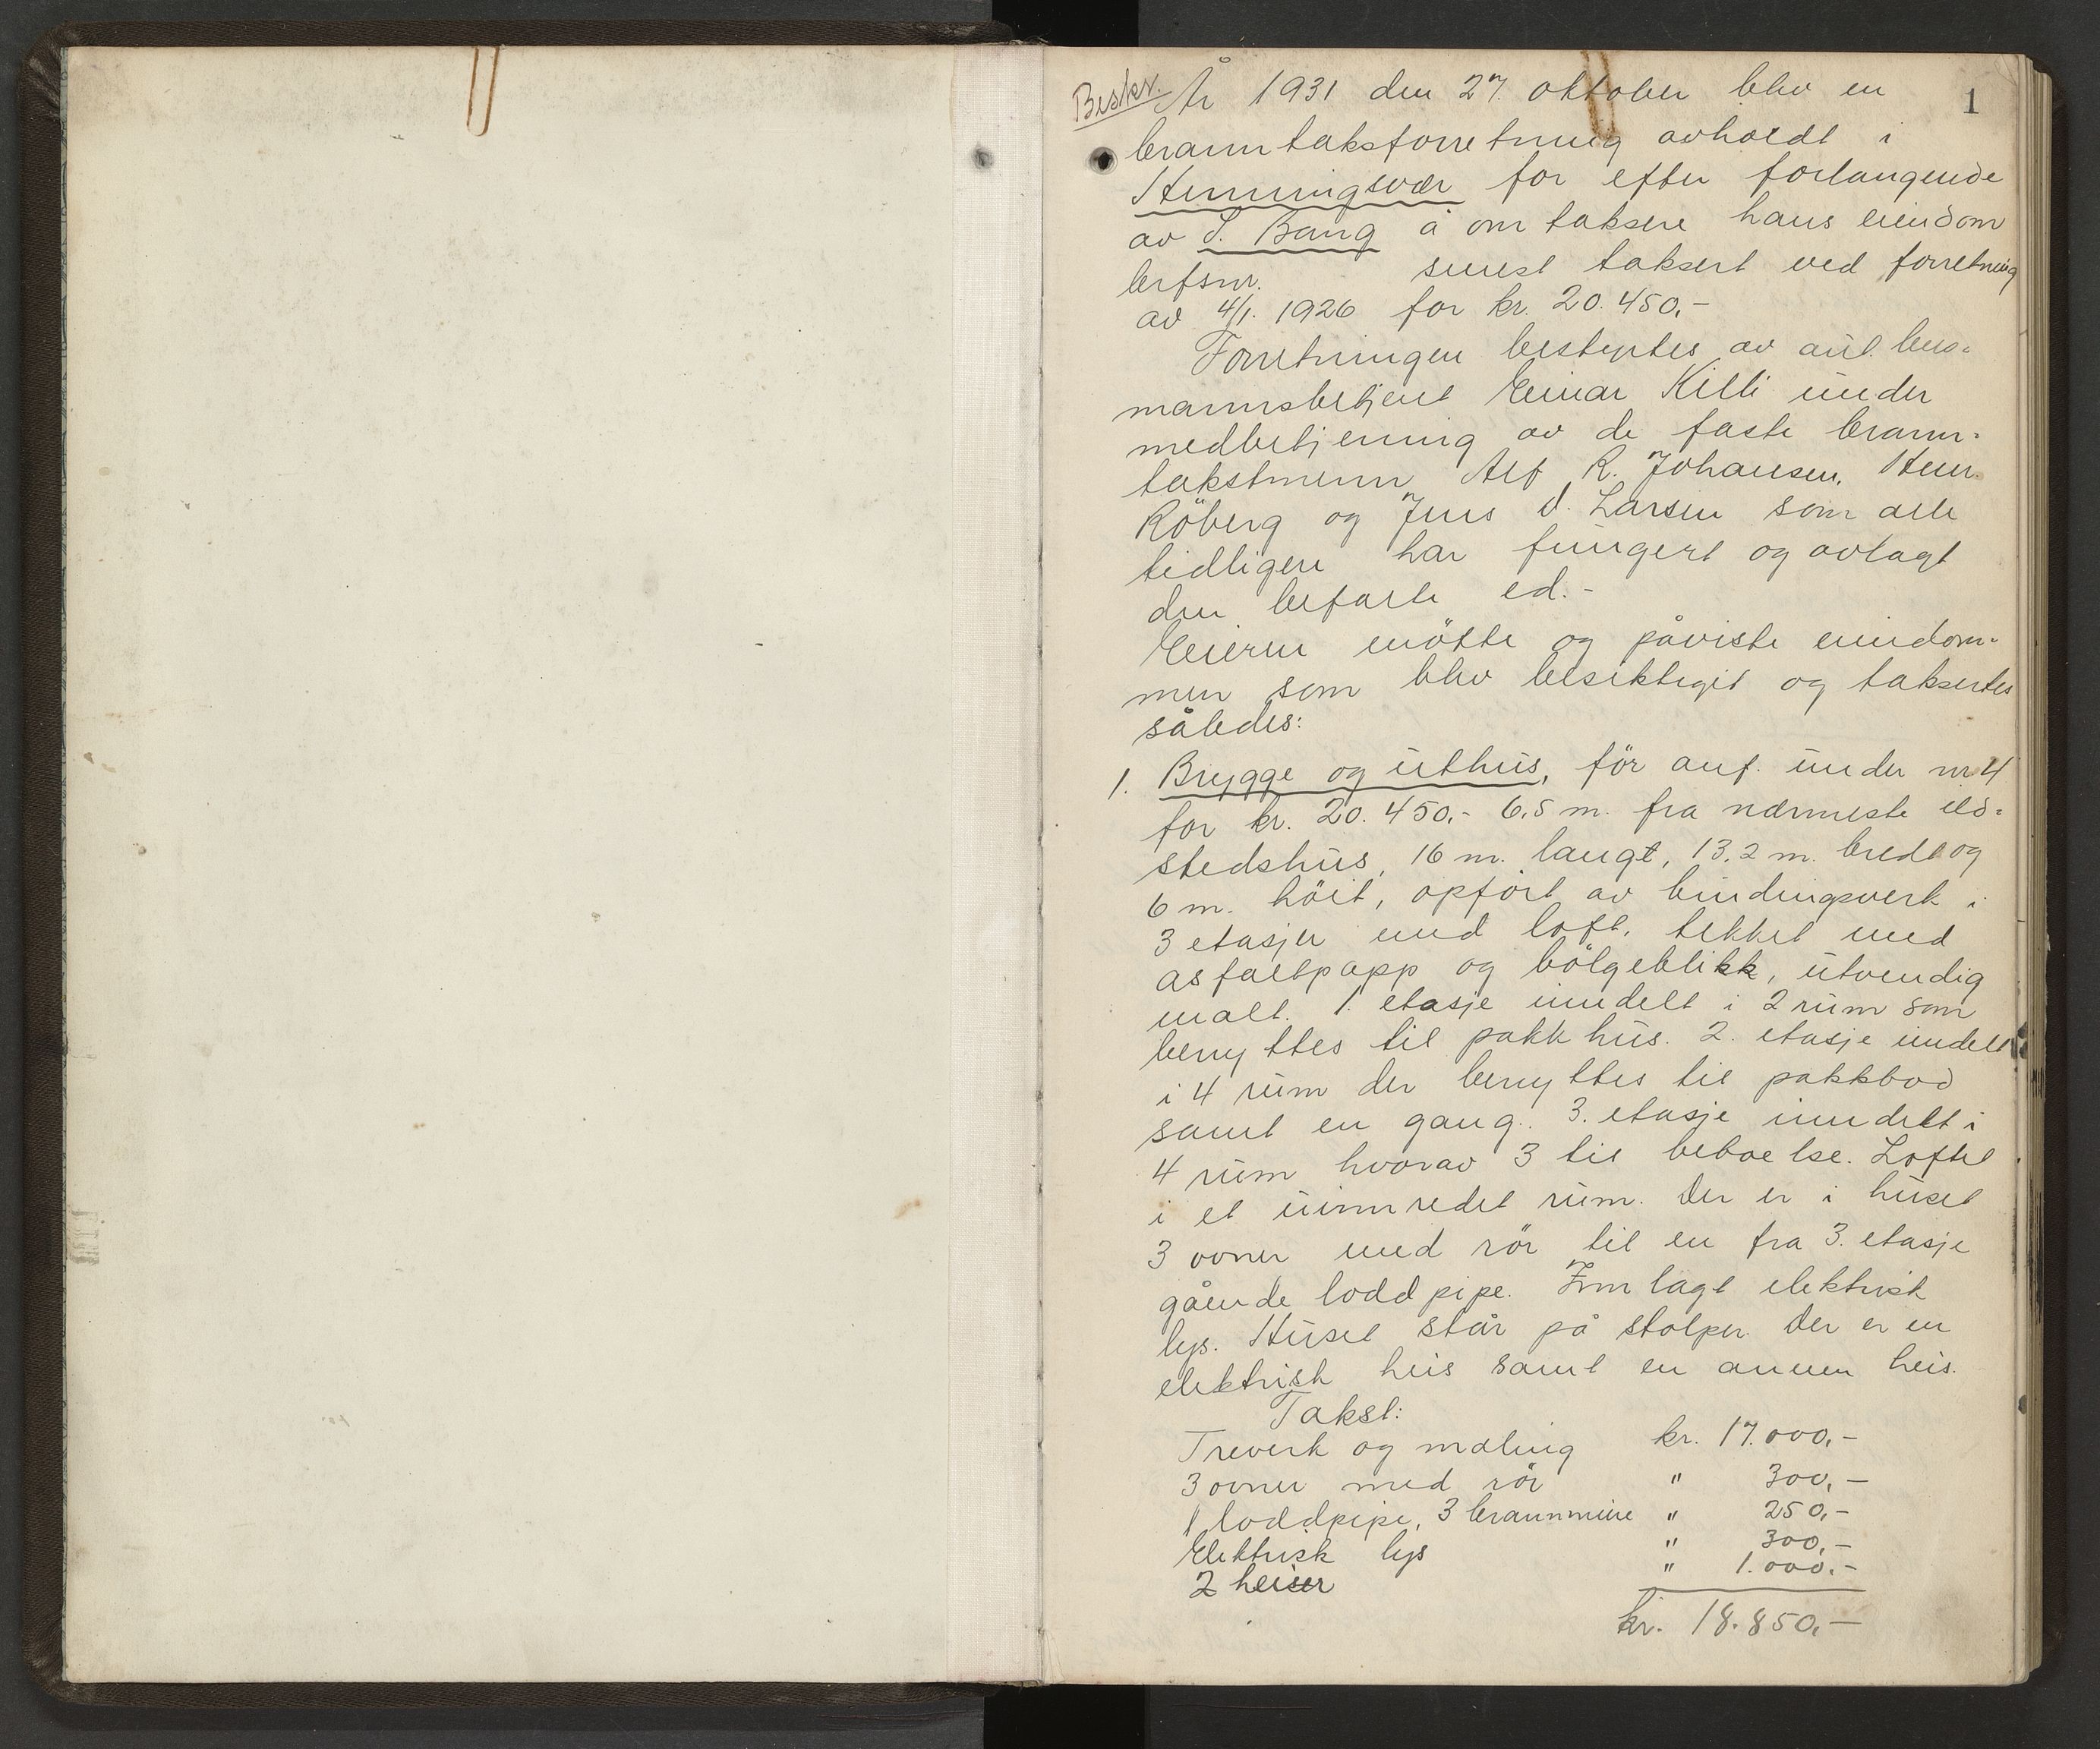 Beskr. År 1931 den 27. oktober blev en 1
branntakstforretning avholdt i
Henningsvær for efter forlangende
av S. Bang å om taksere hans eiendom
brfsnr. senest taksert ved forretning
av 4/1. 1926 for kr. 20.450,-
Forretningen bestyrtes av aut. lens-
mannsbetjent Einar Killi under
medbetjening av de faste brann-
takstmenn Alf R. Johansen, Henr.
Röberg og Jens d. Larsen som alle
tidligere har fungert og avlagt
den befalte ed.-
Eieren mötte og påviste eiendom-
men som blev besiktiget og takseres
således:
1. Brygge og uthus, för anf. under nr 4
for kr. 20.450,- 6,5 m. fra nærmeste ild-
stedshus, 16 m. langt, 13,2 m. bredt og
6 m. höit, opfört av bindingsverk i
3 etasjer med loft, tekket med
asfaltpapp og bölgeblikk, utvendig
malt. 1. etasje inndelt i 2 rum som
benyttes til pakkhus. 2. etasje inndelt
i 4 rum der benyttes til pakkbod
samt en gang. 3. etasje inndelt i
4 rum hvorav 3 til beboelse. Loftet
i et uinnredet rum. Der er i huset
3 ovner med rör til en fra 3. etasje
gående loddpipe. Innlagt elektrisk
lys. Huset står på stolper. Der er en
elektrisk heis samt en annen heis.
Takst:
Treverk og maling kr. 17.000,-
3 ovner med rör " 300,-
1 loddpipe, 3 brannmure " 250,-
Elektrisk lys " 300,-
2 heiser " 1.000.-
kr. 18.850,-